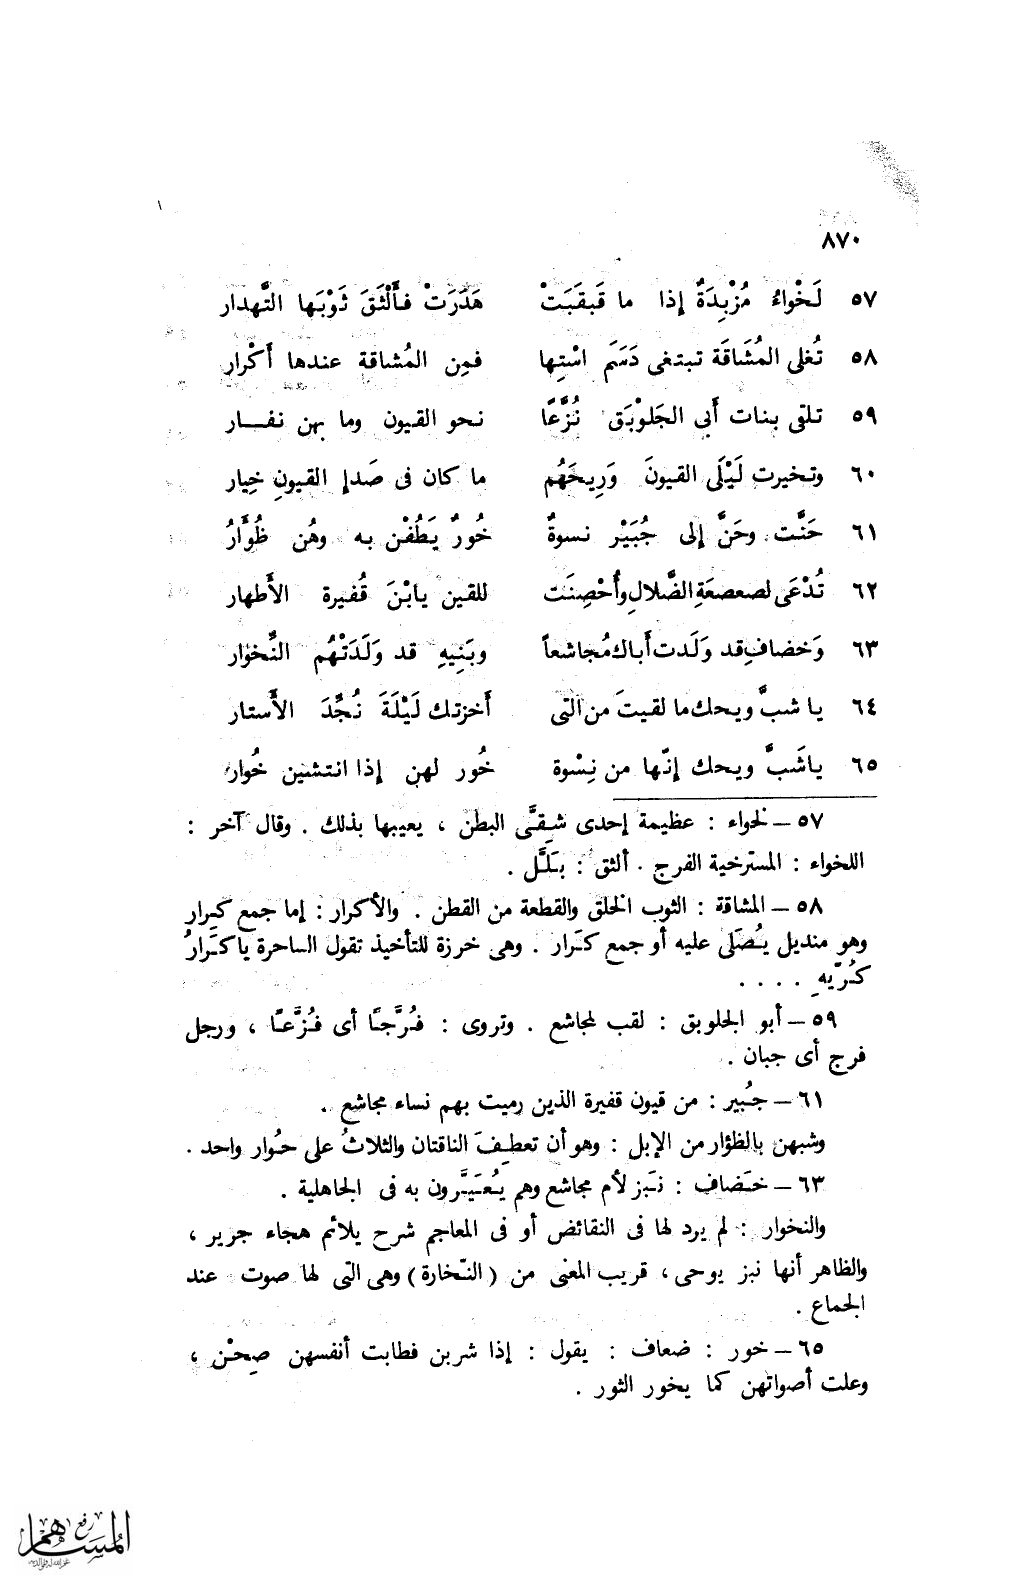 ٨٧٠
٥٧ لَخْواءُ مُزْبِدَةٌ إذا ما قَبقَبَتْ هَدَرَتْ فأَلْثَقَ ثَوْبَها التَّهدار
٥٨ تُغلى المُشَاقَة تبتغى دَسَمَ اسْتِها فمِن المُشاقة عندها أَكْرار
٥٩ تلقى بنات أَبي الجَلوْبَق نُزَّعًا نحو القيون وما بهن نفــار
٦٠ وتخيرت لَيْلَى القيونَ وَرِيحَهُم ما كان فى صَدإِ القيونِ خِيار
٦١ حَنَّت وحَنَّ إلى جُبَيْر نسوةٌ خُورٌ يَطُفْن به وهُن ظُوَّارُ
٦٢ تُدْعَى لصعصعَةِ الضَّلالِ وأُحْصِنَت للقين يابْنَ قُفيرة الأَطهار
٦٣ وَخضافِ قد وَلَدت أَباك مُجاشعاً وبَنِيهِ قد وَلَدَتْهُم النِّخوار
٦٤ يا شبَّ ويحك ما لقيتَ من التى أَخزتك لَيْلَةَ نُجِّدَ الأَستار
٦٥ ياشَبَّ ويحك إنّها من نِسْوة خُور لهن إذا انتشين خُوار
٥٧ – لخواء : عظيمة إحدى شِقَّى البطن ، يعيبها بذلك . وقال آخر :
اللخواء : المسترخية الفرج . ألثق : بَلَّل .
٥٨ – المشاقة : الثوب الخلق والقطعة من القطن . والأكرار : إما جمع كِرار
وهو منديل يُصَلى عليه أو جمع كَرار . وهى خرزة للتأخيذ تقول الساحرة ياكَرارُ
كُرّيهِ . . . .
٥٩ – أبو الجلوبق : لقب لمجاشع . وتروى : فُرَّجًا أى فُزَّعًا ، ورجل
فرج أى جبان .
٦١ – جُبير : من قيون قفيرة الذين رميت بهم نساء مجاشع .
وشبهن بالظؤار من الإبل : وهو أن تعطِفَ الناقتان والثلاثُ على حُوار واحد .
٦٣ – خَضاف : نَبز لأم مجاشع وهم يُعَيَّرون به فى الجاهلية .
والنخوار : لم يرد لها فى النقائض أو فى المعاجم شرح يلائم هجاء جرير ،
والظاهر أنها نبز يوحى ، قريب المعنى من ( النّخارة ) وهى التى لها صوت عند
الجماع .
٦٥ – خور : ضعاف : يقول : إذا شربن فطابت أنفسهن صِحْن ،
وعلت أصواتهن كما يخور الثور .
رفع
المساهم